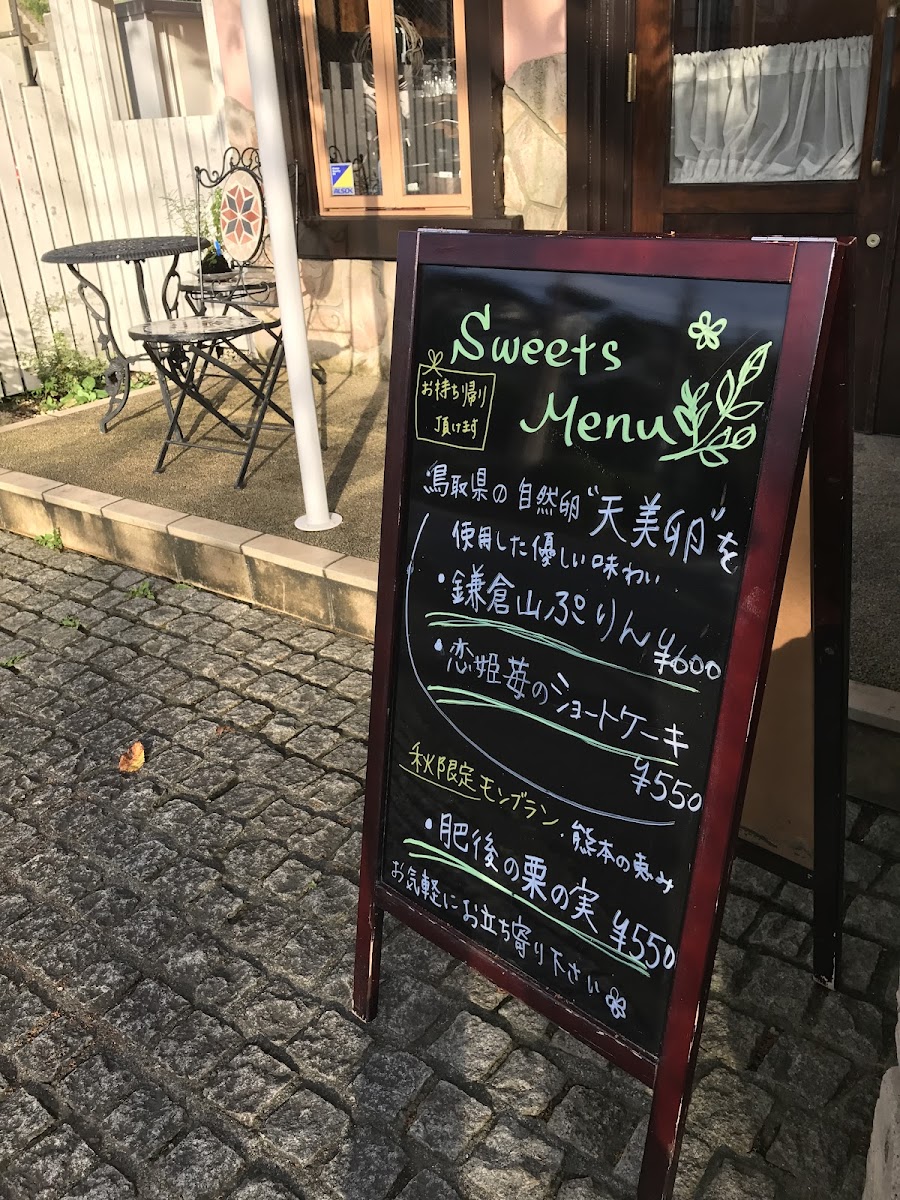 ALSOK
Sweets
Menu
お持ち帰り
頂けます
鳥取県の自然卵"天美卵"を
使用した優しい味わい
・鎌倉山ぷりん ¥600
・恋姫苺のショートケーキ
¥550
秋限定モンブラン、熊本の恵み
・肥後の栗の実 ¥550
お気軽にお立ち寄り下さい